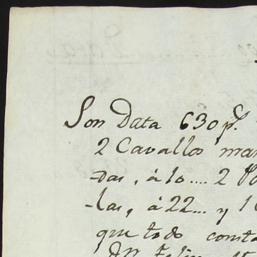 Son Data 630 p.s
2 Cavallos man
das, à 10.... 2 Po
las, à 22... y 1
que todo const